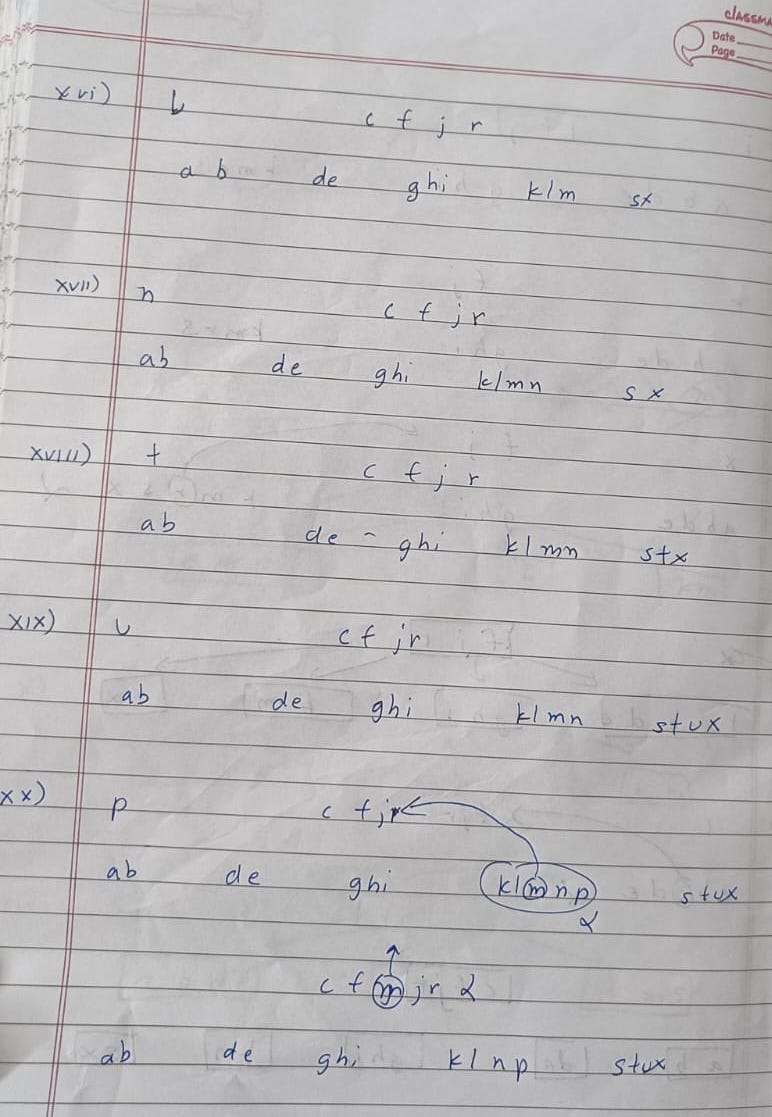 classma
Date
Page
xvi) b
c f j r
a b de ghi klm sx
xvii) n
c f j r
ab de ghi klmn sx
xviii) t
c f j r
ab de - ghi klmn stx
xix) u
c f j r
ab de ghi klmn stux
xx) p
c f j r
ab de ghi klmnp stux
α
c f m j r α
ab de ghi klnp stux